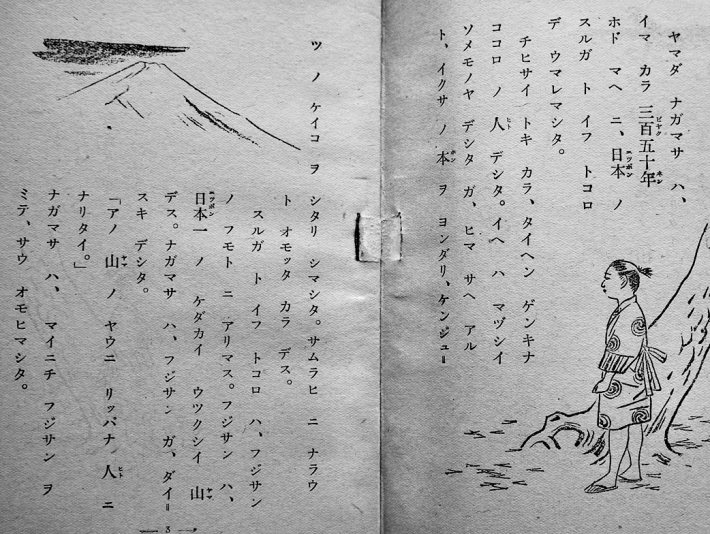 ヤマダ ナガマサ ハ、
イマ カラ 三百五十年
ホド マヘ ニ、日本 ノ
スルガ ト イフ トコロ
デ ウマレマシタ。
チヒサイ トキ カラ、タイヘン ゲンキナ
ココロ ノ 人 デシタ。イヘ ハ マヅシイ
ソメモノヤ デシタ ガ、ヒマ サヘ アル
ト、イクサ ノ 本 ヲ ヨンダリ、ケンジュ=
ツ ノ ケイコ ヲ シタリ シマシタ。サムラヒ ニ ナラウ
ト オモッタ カラ デス。
スルガ ト イフ トコロ ハ、フジサン
ノ フモト ニ アリマス。フジサン ハ、
日本一 ノ ケダカイ ウツクシイ 山
デス。ナガマサ ハ、フジサン ガ、ダイ=
スキ デシタ。
「アノ 山 ノ ヤウニ リッパナ 人 ニ
ナリタイ。」
ナガマサ ハ、マイニチ フジサン ヲ
ミテ、サウ オモヒマシタ。
— 3 —